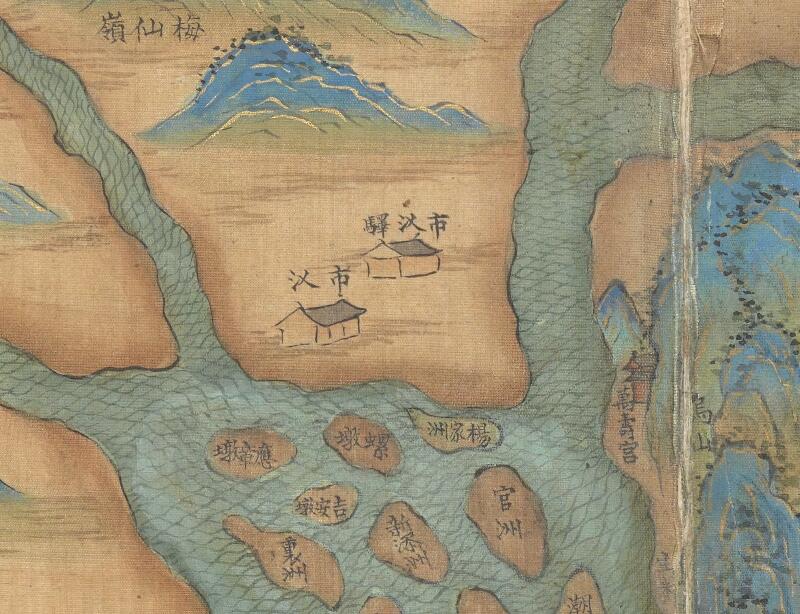 梅仙嶺
市汊驛
市汊
楊家洲
螺墩
應帝墩
吉安墩
官洲
新洲
裏洲
潮
萬壽宮
烏山